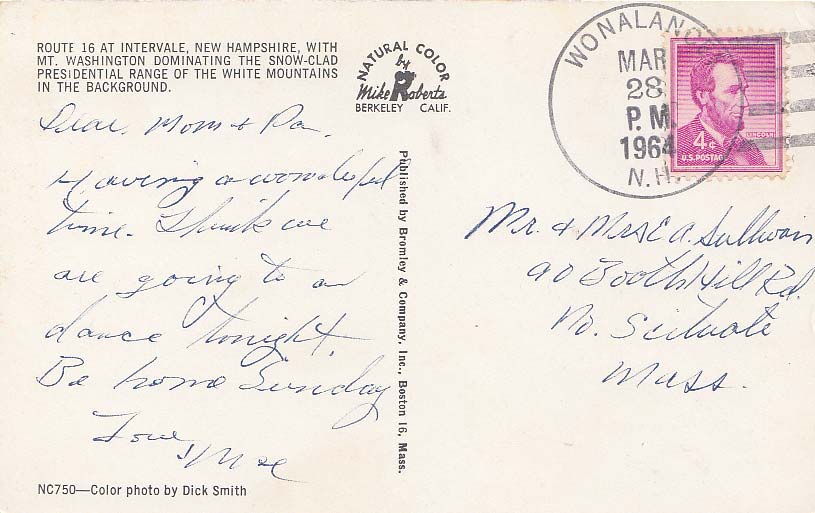 ROUTE 16 AT INTERVALE, NEW HAMPSHIRE, WITH
MT. WASHINGTON DOMINATING THE SNOW-CLAD
PRESIDENTIAL RANGE OF THE WHITE MOUNTAINS
IN THE BACKGROUND.
NATURAL COLOR
by
Mike Roberts
BERKELEY CALIF.
WONALANC
MAR
28
P. M.
1964
N.H.
LINCOLN
4¢
U.S. POSTAGE
Dear Mom & Da.
Having a wonderful
time. Think we
are going to a
dance tonight.
Be home Sunday
Love,
Moe
Published by Bromley & Company, Inc., Boston 16, Mass.
Mr. & Mrs E A. Sullivan
90 Booth Hill Rd.
No. Scituate
Mass.
NC750—Color photo by Dick Smith